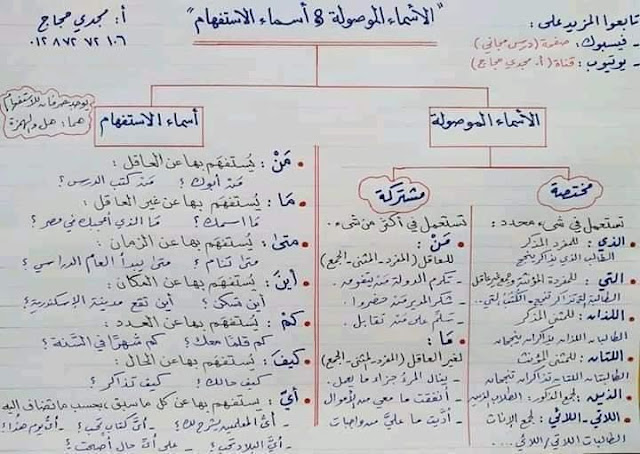 تابعوا المزيد على :
- فيسبوك: صفحة (درس مجاني)
- يوتيوب: قناة (أ. مجدي حجاج)
"الأسماء الموصولة & أسماء الاستفهام"
أ: مجدي حجاج
٠١٢٨٧٢٧٢١٠٦
الأسماء الموصولة
مختصة
تستعمل في شيء محدد :
الذي : للمفرد المذكر
الطالب الذي يذاكر ينجح
التي : للمفردة المؤنثة وجمع غير عاقل
الطالبة التي تذاكر تنجح - الكتب التي..
اللذان : للمثنى المذكر
الطالبان اللذان يذاكران ينجحان
اللتان : للمثنى المؤنث
الطالبتان اللتان تذاكران تنجحان
الذين : لجمع الذكور : الطلاب الذين
اللاتي - اللائي : لجمع الإناث
الطالبات اللاتي / اللائي ...
مشتركة
تستعمل في أكثر من شيء .
مَنْ :
للعاقل (المفرد - المثنى - الجمع)
- تكرم الدولة من يتفوقه .
- شكر المدير من حضروا .
- سلّم على من تقابل .
مَا :
لغير العاقل (المفرد - المثنى - الجمع)
- ينال المرء جزاء ما يعمل .
- أنفقت ما معي من الأموال
- أدّيت ما عليّ من واجبات
أسماء الاستفهام
يوجد حرفان للاستفهام
هما : هل والهمزة
مَنْ : يُستفهَم بها عن العاقل :
مَنْ أبوك ؟ مَنْ كتب الدرس ؟
مَا : يُستفهَم بها عن غير العاقل :
مَا اسمك ؟ مَا الذي أعجبك في مصر ؟
متى : يُستفهَم بها عن الزمان :
متى تنام ؟ متى يبدأ العام الدراسي ؟
أينَ : يُستفهَم بها عن المكان :
أين تسكن ؟ أين تقع مدينة الإسكندرية ؟
كَمْ : يُستفهَم بها عن العدد :
كم قلمًا معك ؟ كم شهرًا في السَّنة ؟
كيفَ : يُستفهَم بها عن الحال :
كيف حالك ؟ كيف تذاكر ؟
أيّ : يستفهم بها عن كل ما سبق ، بحسب ما تضاف إليه
- أيّ المعلمين يشرح لك ؟ - أيّ كتاب تحب ؟ - أيّ يوم هذا ؟
- أيّ البلاد تحب ؟ - على أيّ حال أصبحت ؟